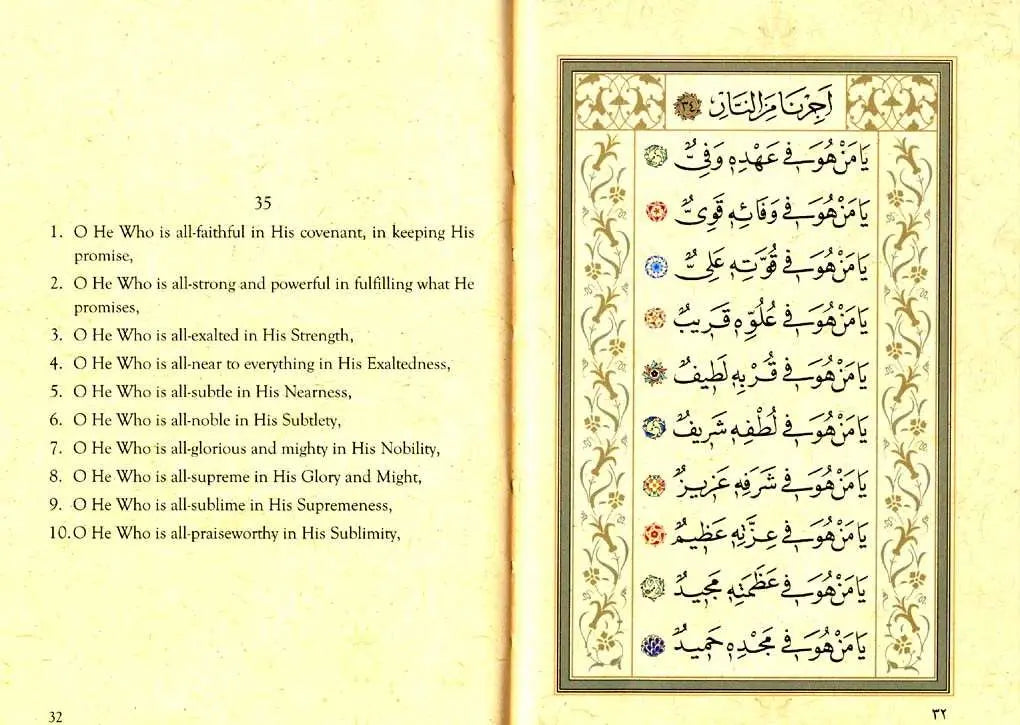 35
1. O He Who is all-faithful in His covenant, in keeping His
promise,
2. O He Who is all-strong and powerful in fulfilling what He
promises,
3. O He Who is all-exalted in His Strength,
4. O He Who is all-near to everything in His Exaltedness,
5. O He Who is all-subtle in His Nearness,
6. O He Who is all-noble in His Subtlety,
7. O He Who is all-glorious and mighty in His Nobility,
8. O He Who is all-supreme in His Glory and Might,
9. O He Who is all-sublime in His Supremeness,
10. O He Who is all-praiseworthy in His Sublimity,
32
اَجِرْنَا مِنَ النَّارِ ٣٤
يَا مَنْ هُوَ فِي عَهْدِهِ وَفِيٌّ
يَا مَنْ هُوَ فِي وَفَائِهِ قَوِيٌّ
يَا مَنْ هُوَ فِي قُوَّتِهِ عَلِيٌّ
يَا مَنْ هُوَ فِي عُلُوِّهِ قَرِيبٌ
يَا مَنْ هُوَ فِي قُرْبِهِ لَطِيفٌ
يَا مَنْ هُوَ فِي لُطْفِهِ شَرِيفٌ
يَا مَنْ هُوَ فِي شَرَفِهِ عَزِيزٌ
يَا مَنْ هُوَ فِي عِزَّتِهِ عَظِيمٌ
يَا مَنْ هُوَ فِي عَظَمَتِهِ مَجِيدٌ
يَا مَنْ هُوَ فِي مَجْدِهِ حَمِيدٌ
٣٢